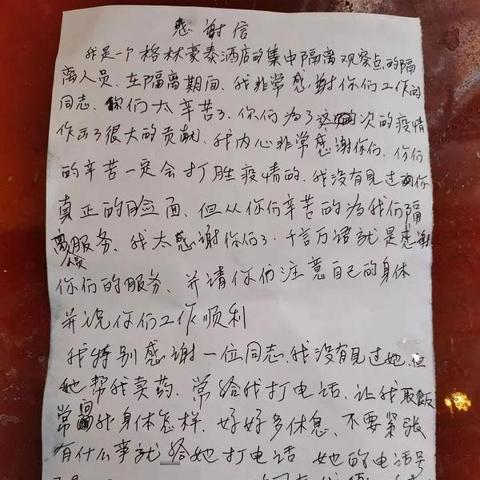 感谢信
我是一个格林豪泰酒店的集中隔离观察点的隔
离人员、在隔离期间、我非常感谢你们工作的
同志、你们太辛苦了、你们为了这次的疫情
作出了很大的贡献、我内心非常感谢你们、你们
的辛苦一定会打胜疫情的、我没有见过你
真正的脸面、但从你们辛苦的为我们隔
离服务、我太感谢你们了、千言万语就是感谢
你们的服务、并请你们注意自己的身体
并祝你们工作顺利
我特别感谢一位同志、我没有见过她、但
她帮我卖药、常给我打电话、让我取饭
常问我身体怎样、好好多休息、不要紧张
有什么事就给她打电话 她的电话号